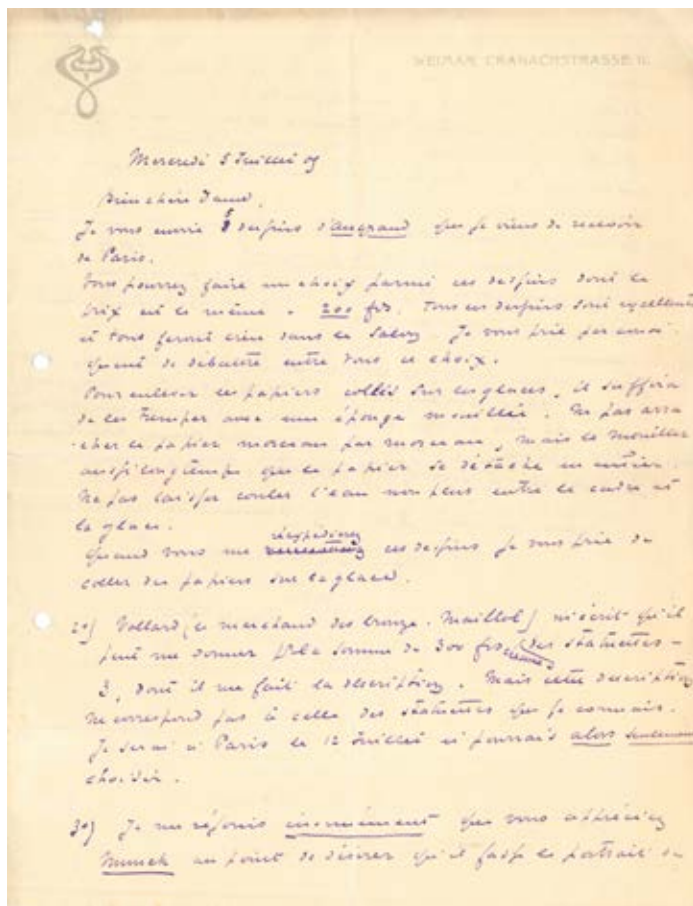 WEIMAR CRANACHSTRASSE 11.
Mercredi 5 Juillet 05
Bien chère Dame,
Je vous envoie 5 dessins d'Angrand que je viens de recevoir
de Paris.
Vous pourrez faire un choix parmi ces dessins dont le
prix est le même. 200 frs. Tous ces dessins sont excellents
et tous feront bien dans le Salon. Je vous prie par
de débattre entre vous ce choix.
Pour enlever les papiers collés sur les glaces, il suffira
de les tremper avec une éponge mouillée. Ne pas arra
-cher le papier morceau par morceau, mais le mouiller
aussi longtemps que le papier se détache en entier.
Ne pas laisser couler l'eau non plus entre le cadre et
la glace.
Quand vous me réexpédierez ces dessins je vous prie de
coller des papiers sur la glace.
2°) Vollard (le marchand des bronze. Maillol) m'écrit qu'il
peut me donner p. la somme de 300 frs des statuettes -
3, dont il me fait la description. Mais cette description
ne correspond pas à celle des statuettes que je connais.
Je serai à Paris le 12 Juillet et pourrais alors seulement
choisir.
3°) Je me réjouis énormément que vous appréciez
Munch au point de désirer qu'il fasse le portrait de